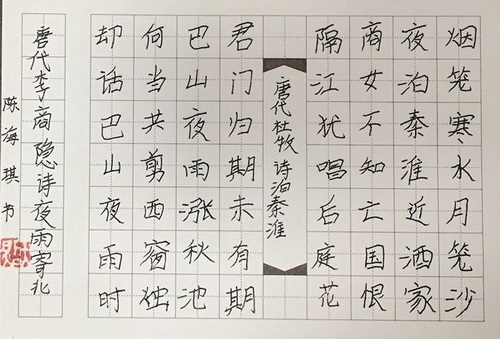 烟笼寒水月笼沙
夜泊秦淮近酒家
商女不知亡国恨
隔江犹唱后庭花
唐代杜牧诗泊秦淮
君门归期未有期
巴山夜雨涨秋池
何当共剪西窗独
却话巴山夜雨时
唐代李商隐诗夜雨寄北
陈海琪书